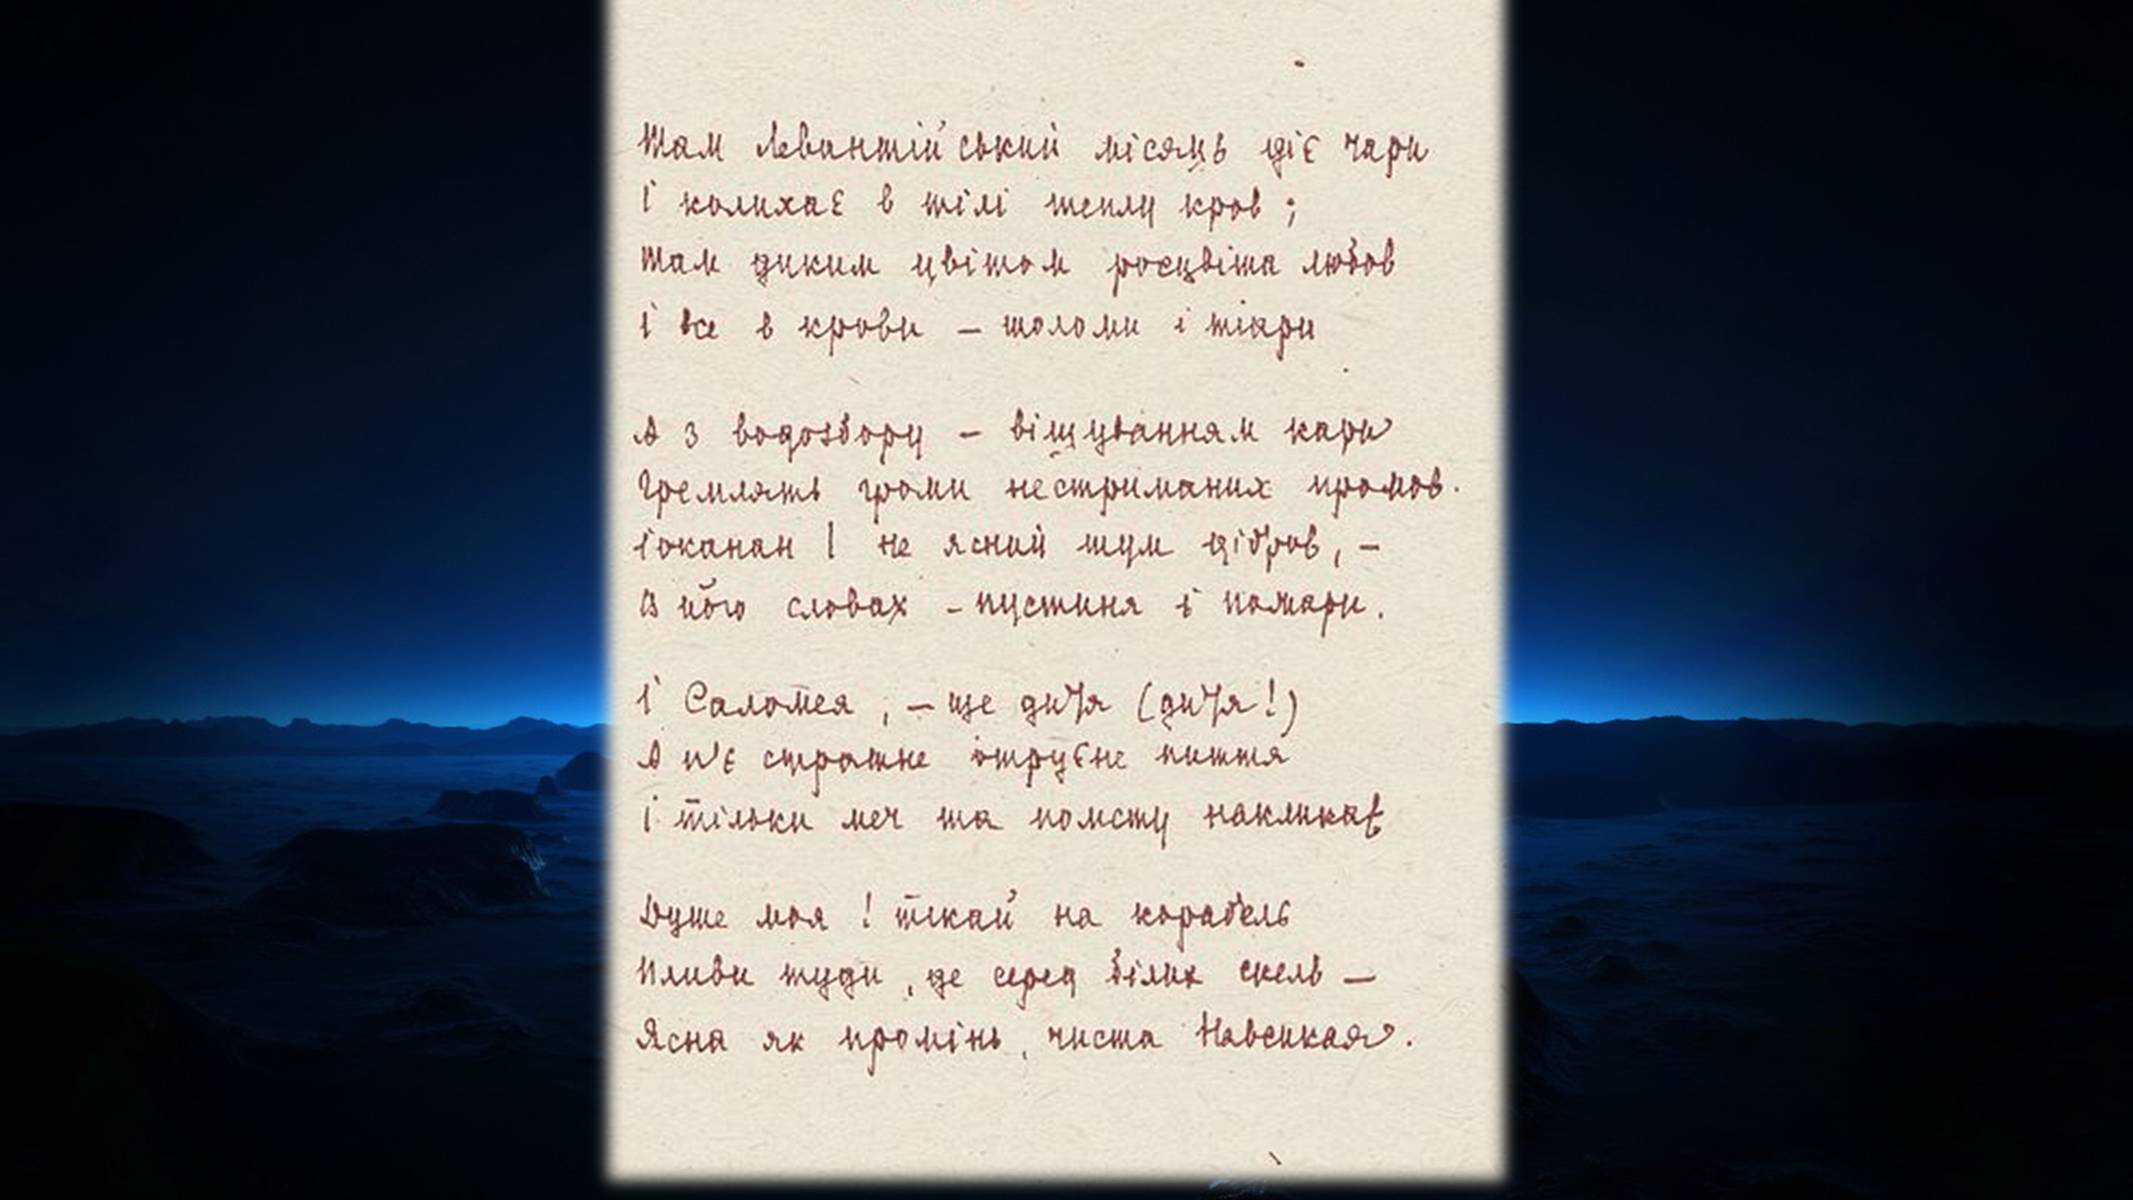 Там левантійський місяць діє чари
І колихає в тілі теплу кров ;
Там диким цвітом росцвіта любов
І все в крови – шоломи і тіари
А з водозбору – віщуванням кари
Гремлять громи нестриманих промов.
Іоканан ! не ясний шум дібров, –
В його словах – пустиня і пожари.
І Саломея , – ще дитя (дитя!)
А п'є страшне отруєне пиття
І тільки меч та помсту накликає
Душе моя ! тікай на корабель
Пливи туди , де серед білих скель –
Ясна як промінь, чиста Навсикая.